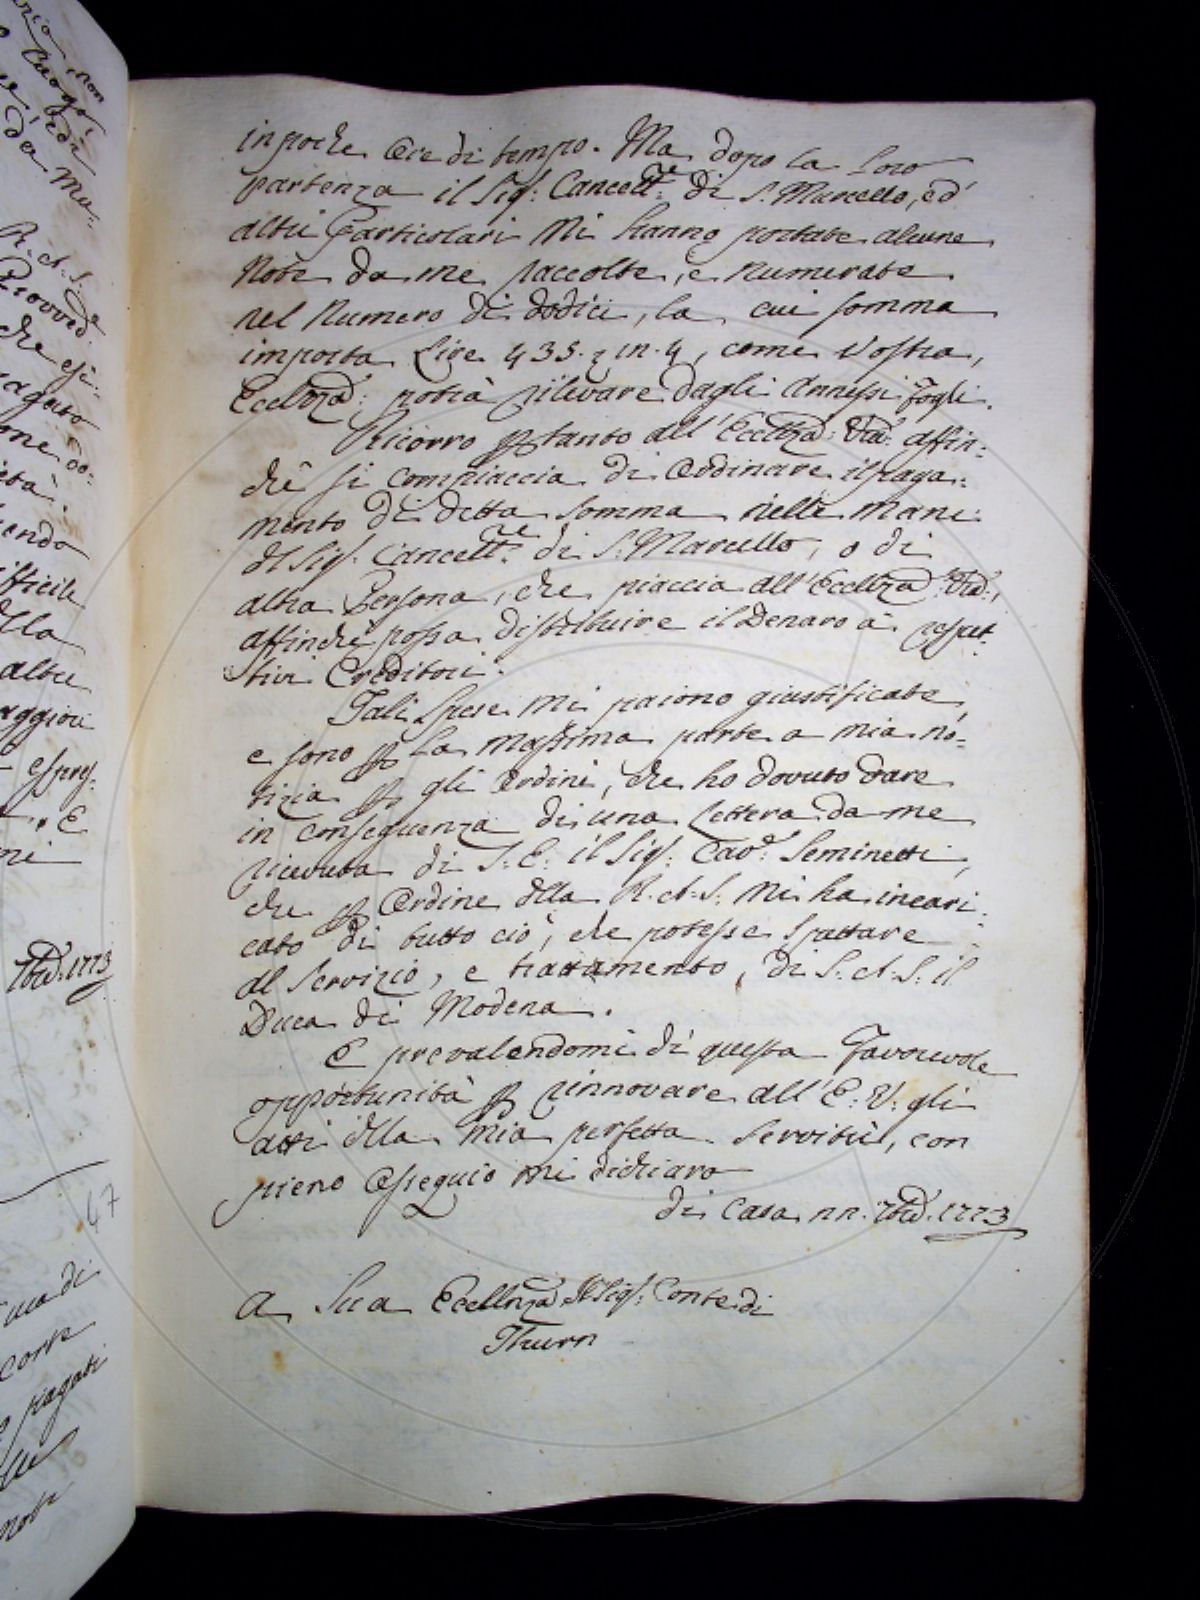 in poche Ore di tempo. Ma dopo la loro
partenza il Sig:r Cancell:re di S: Marcello, ed
altri Particolari mi hanno portate alcune
Note da me raccolte, e numerate
nel numero di dodici, la cui somma
importa Lire 435. 3 in. 4, come Vostra
Ecell:nza potrà rilevare dagli annessi fogli.
Ricorro p tanto all' Ecell:nza V:ra affin:
chè si compiaccia di Ordinare il paga:
mento di detta somma nelle mani
dl Sig:r Cancell:re di S: Marcello, o di
altra Persona, che piaccia all' Ecell:nza V:ra,
affinchè possa distribuire il Denaro a' rispet:
tivi Creditori.
Tali Spese mi paiono giustificate,
e sono p la massima parte a mia no:
tizia p gli Ordini, che ho dovuto dare
in conseguenza di una Lettera da me
ricevuta di S: E: il Sig: Cav: Seminetti,
che p Ordine dlla R. A. S. mi ha incari:
cato di tutto ciò, che potesse spettare
al Servizio, e trattamento, di S: A: S: il
Duca di Modena.
E prevalendomi di questa Favorevole
opportunità p rinnovare all' E: V: gli
atti dlla mia perfetta servitù, con
pieno Ossequio mi dichiaro
di Casa 11. 7bre. 1773
A Sua Ecell:nza Il Sig: Conte di
Thurn
7bre. 1773
47